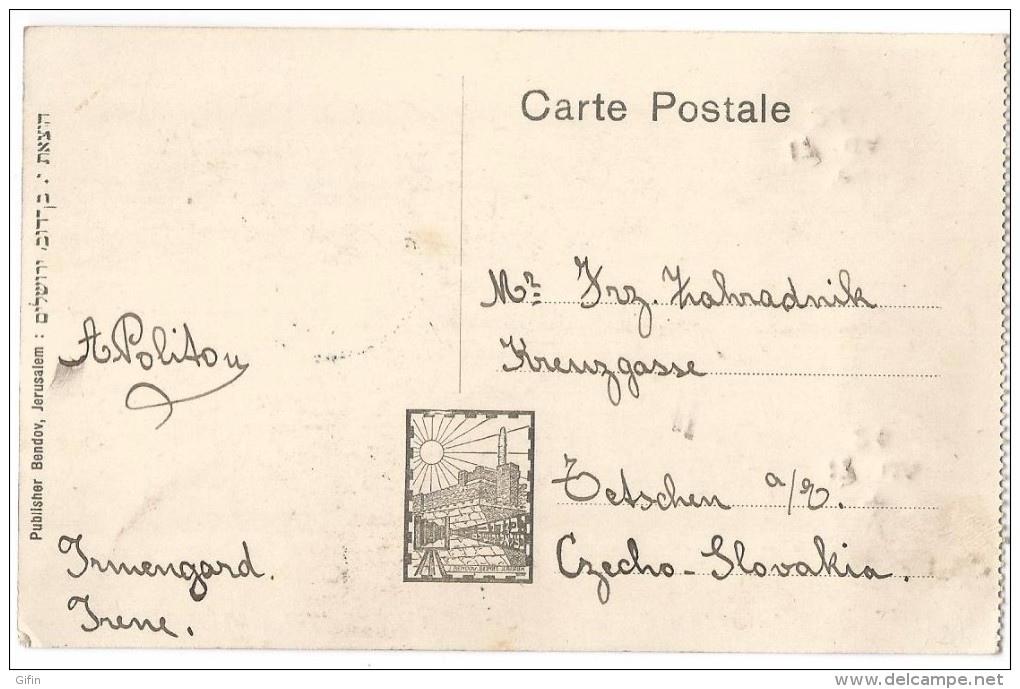 Carte Postale
הוצאת י. בן דוב, ירושלים :
Publisher Bendov, Jerusalem :
Mr. Frz. Zahradnik
Kreuzgasse
Tetschen a/E.
Czecho-Slovakia.
APolitou
Irmengard.
Irene.
Gifin
delcampe.net